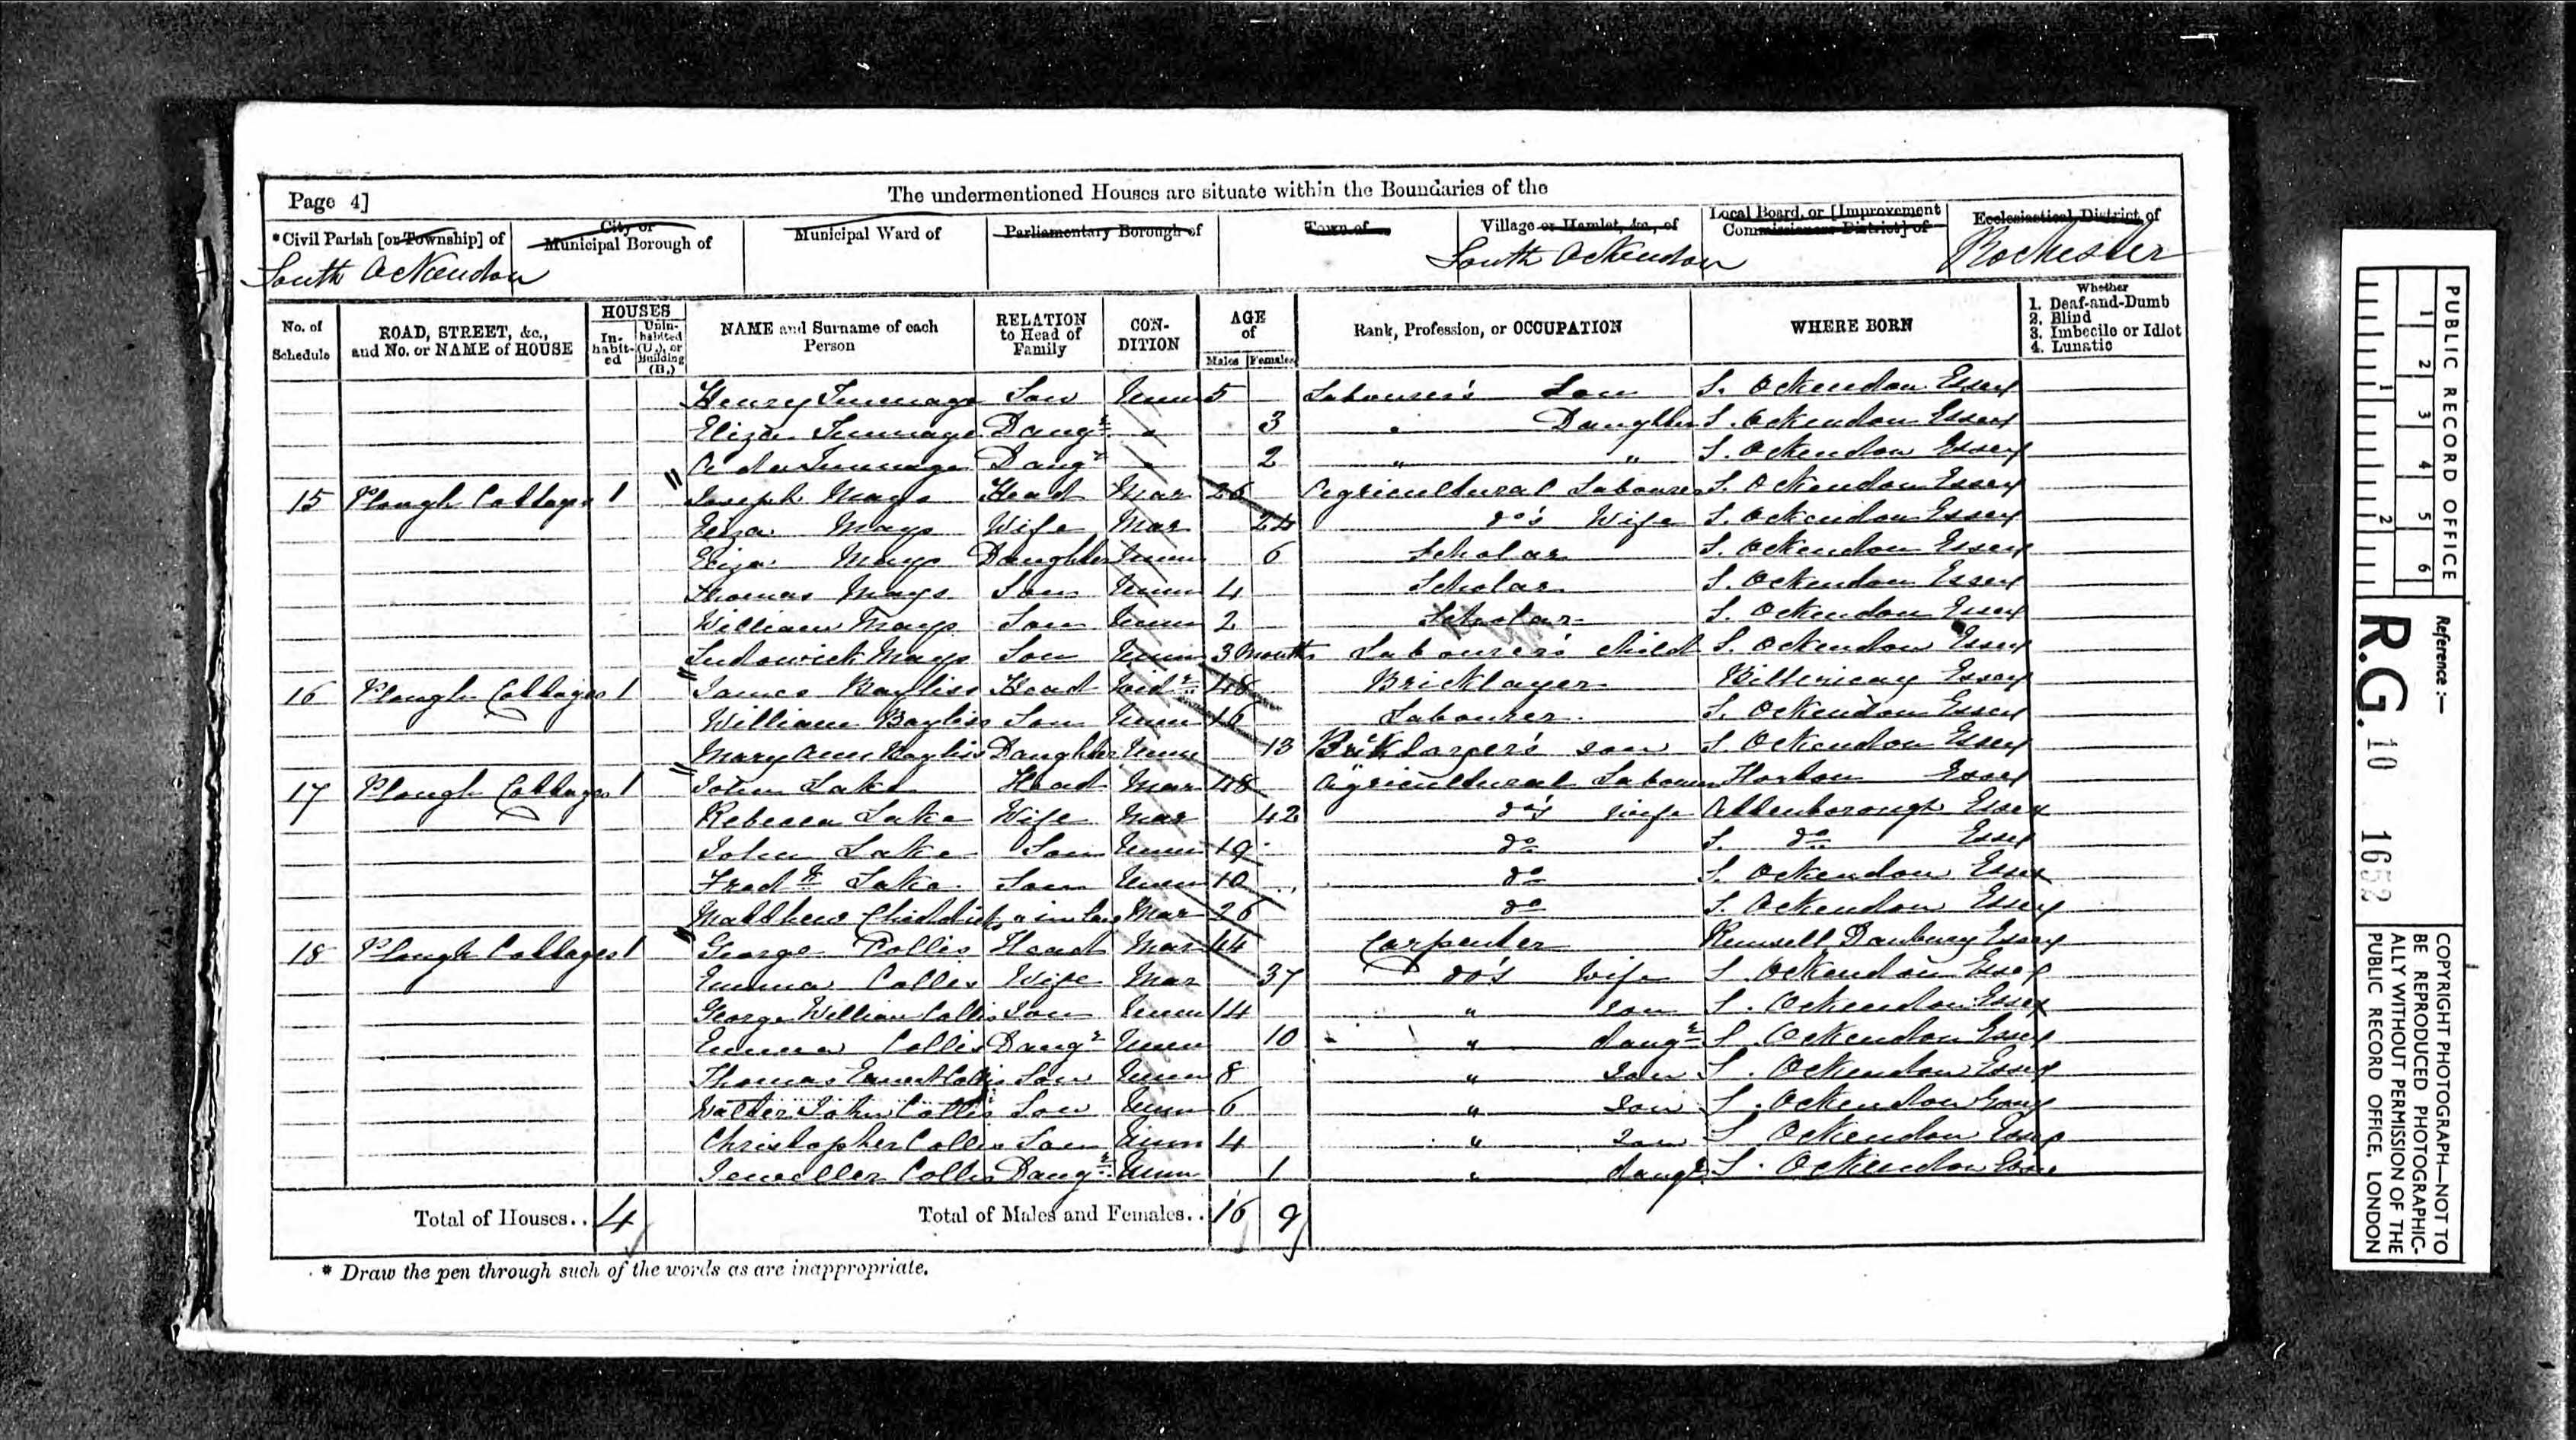 Page 4]
The undermentioned Houses are situate within the Boundaries of the
*Civil Parish [or Township] of
City or Municipal Borough of
Municipal Ward of
Parliamentary Borough of
Town of
Village or Hamlet, &c., of
Local Board, or [Improvement Commissioners District] of
Ecclesiastical District of
South Ockendon
South Ockendon
Rochester
No. of Schedule
ROAD, STREET, &c., and No. or NAME of HOUSE
HOUSES
In-habit-ed
Unin-habited (U.), or Building (B.)
NAME and Surname of each Person
RELATION to Head of Family
CON-DITION
AGE of
Males
Females
Rank, Profession, or OCCUPATION
WHERE BORN
Whether
1. Deaf-and-Dumb
2. Blind
3. Imbecile or Idiot
4. Lunatic
Henry Son Unm 5 Labourer's Son S. Ockendon Essex
Eliza Daugr " 3 " Daughter S. Ockendon Essex
Ada Daugr " 2 " " S. Ockendon Essex
15 Plough Cottages 1 Joseph Mays Head Mar 26 Agricultural Labourer S. Ockendon Essex
Eliza Mays Wife Mar 24 do's Wife S. Ockendon Essex
Eliza Mays Daughter Unm 6 Scholar S. Ockendon Essex
Thomas Mays Son Unm 4 Scholar S. Ockendon Essex
William Mays Son Unm 2 Scholar S. Ockendon Essex
Mays Son Unm 3 months Labourer's child S. Ockendon Essex
16 Plough Cottages 1 James Bayliss Head Widr 48 Bricklayer Billericay Essex
William Bayliss Son Unm 16 Labourer S. Ockendon Essex
Mary Ann Bayliss Daughter Unm 13 son S. Ockendon Essex
17 Plough Cottages 1 John Lake Head Mar 48 Agricultural Labourer Essex
Rebecca Lake Wife Mar 42 do's wife Essex
John Lake Son Unm 19 do S. do Essex
Fredk Lake Son Unm 10 do S. Ockendon Essex
Matthew Mar 26 do S. Ockendon Essex
18 Plough Cottages 1 George Collis Head Mar 44 Carpenter Danbury Essex
Emma Collis Wife Mar 37 do's Wife S. Ockendon Essex
George William Collis Son Unm 14 " son S. Ockendon Essex
Emma Collis Daugr Unm 10 " daugr S. Ockendon Essex
Thomas Ernest Collis Son Unm 8 " son S. Ockendon Essex
Walter John Collis Son Unm 6 " son S. Ockendon Essex
Christopher Collis Son Unm 4 " son S. Ockendon Essex
Collis Daugr Unm 1 " daugr S. Ockendon Essex
Total of Houses.. 4
Total of Males and Females.. 16 9
* Draw the pen through such of the words as are inappropriate.
PUBLIC RECORD OFFICE
1 2 3 4 5 6
1 2
Reference :—
R.G. 10 1652
COPYRIGHT PHOTOGRAPH—NOT TO
BE REPRODUCED PHOTOGRAPHIC-
ALLY WITHOUT PERMISSION OF THE
PUBLIC RECORD OFFICE, LONDON